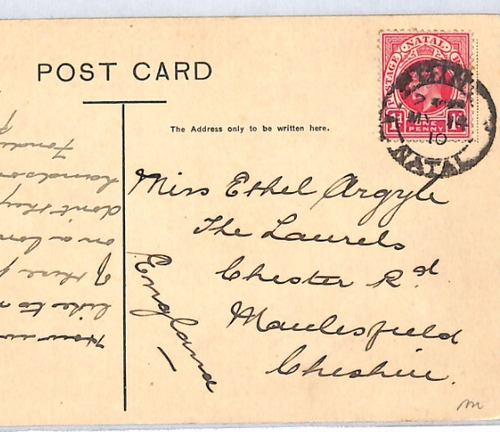 POST CARD
The Address only to be written here.
POSTAGE NATAL
ONE PENNY
MY 14
10
NATAL
Miss Ethel Argyle
The Laurels
Chester Rd
Maclesfield
Cheshire.
England
How
like to
on a
don't they